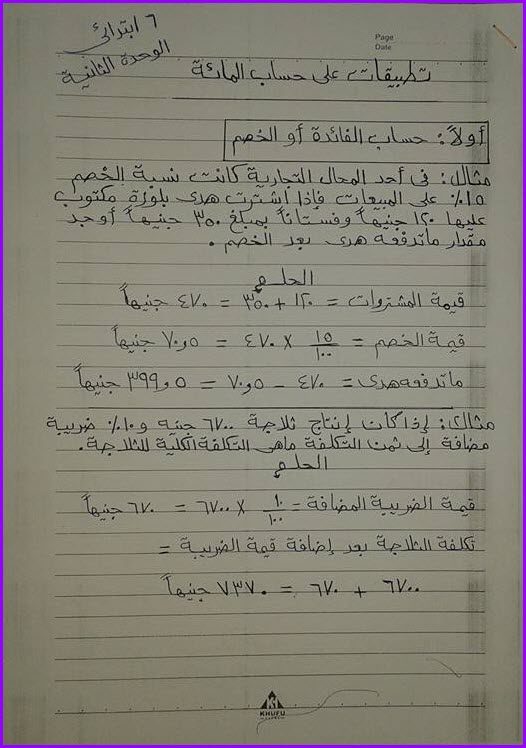 ٦ ابتدائى
الوحدة الثانية
Page
Date
تطبيقات على حساب المائة
أولاً: حساب الفائدة أو الخصم
مثال١: فى أحد المحال التجارية كانت نسبة الخصم
١٥٪ على المبيعات فإذا إشترت هدى بلوزة مكتوب
عليها ١٢٠ جنيهاً وفستاناً بمبلغ ٣٥٠ جنيهاً أوجد
مقدار ماتدفعه هدى بعد الخصم.
الحل
قيمة المشتروات = ١٢٠ + ٣٥٠ = ٤٧٠ جنيهاً
قيمة الخصم = ١٥/١٠٠ × ٤٧٠ = ٧٠و٥ جنيهاً
ماتدفعه هدى = ٤٧٠ - ٧٠و٥ = ٣٩٩و٥ جنيهاً
مثال٢: إذا كان إنتاج ثلاجة ٦٧٠٠ جنيه و ١٠٪ ضريبة
مضافة إلى ثمن التكلفة ماهى التكلفة الكلية للثلاجة.
الحل
قيمة الضريبة المضافة = ١٠/١٠٠ × ٦٧٠٠ = ٦٧٠ جنيهاً
تكلفة الثلاجة بعد إضافة قيمة الضريبة =
٦٧٠٠ + ٦٧٠ = ٧٣٧٠ جنيهاً
KHUFU